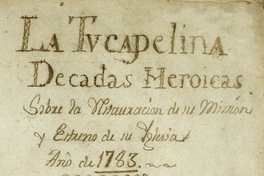 La Tvcapelina
Decadas Heroicas
Sobre la Restauracion de su Mision
y Estreno de su Iglesia
Año de 1783.